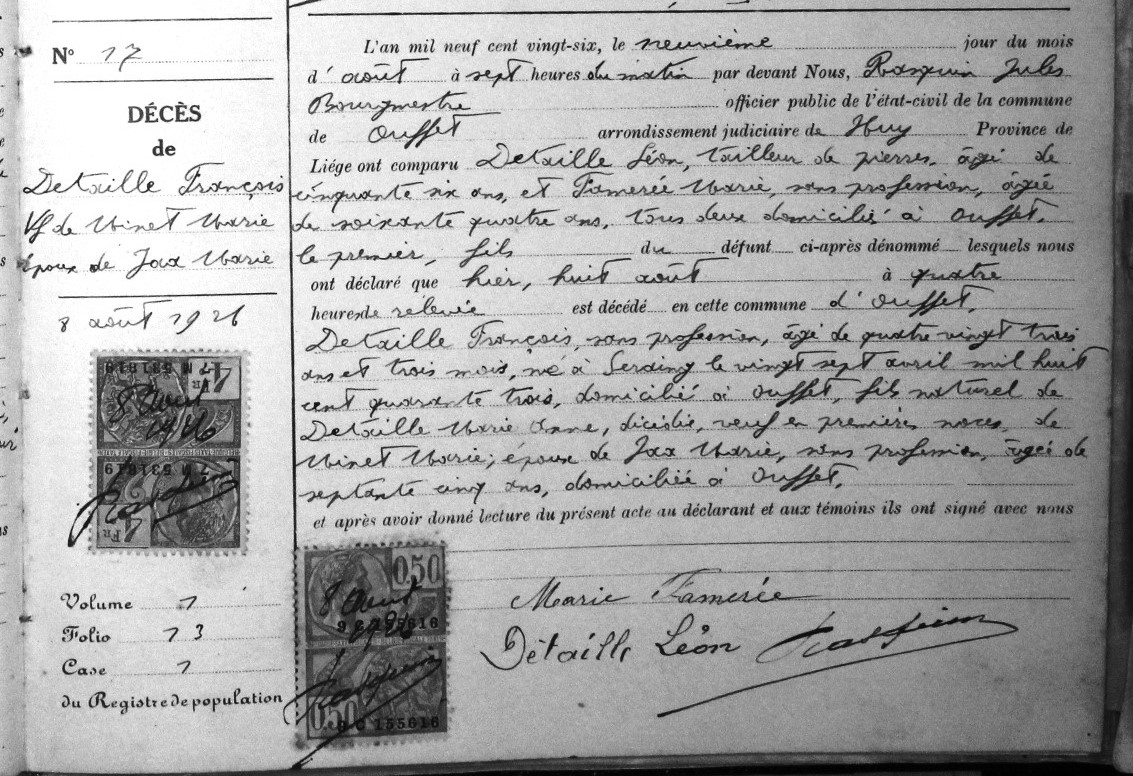 N° 17
DÉCÈS
de
Detaille François
Vf de Minet Marie
époux de Jax Marie
8 août 1926
L'an mil neuf cent vingt-six, le neuvième jour du mois
d'août à sept heures du matin par devant Nous, Rasquin Jules
Bourgmestre officier public de l'état-civil de la commune
de Ouffet arrondissement judiciaire de Huy Province de
Liége ont comparu Detaille Léon, tailleur de pierres, âgé de
cinquante six ans, et Famerée Marie, sans profession, âgée
de soixante quatre ans, tous deux domiciliés à Ouffet,
le premier, fils du défunt ci-après dénommé lesquels nous
ont déclaré que hier, huit août à quatre
heures de relevée est décédé en cette commune d'Ouffet,
Detaille François, sans profession, âgé de quatre vingt trois
ans et trois mois, né à Seraing le vingt sept avril mil huit
cent quarante trois, domicilié à Ouffet, fils naturel de
Detaille Marie Anne, décédée, veuf en premières noces, de
Minet Marie; époux de Jax Marie, sans profession, âgée de
septante cinq ans, domiciliée à Ouffet.
et après avoir donné lecture du présent acte au déclarant et aux témoins ils ont signé avec nous
8 août
1926
Rasquin
FR
0,50
8 août
9 C 155616
Rasquin
0,50
9 C 155616
Marie Famerée
Détaille Léon Rasquin
Volume 1
Folio 13
Case 1
du Registre de population